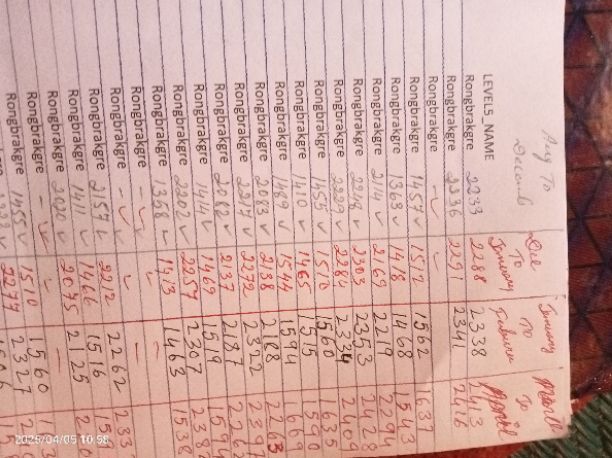 Aug To Dec To January To March To
December January February April
LEVEL5_NAME
Rongbrakgre 2233 2288 2338 2413
Rongbrakgre 2236 2291 2341 2416
Rongbrakgre - ✓ ✓
Rongbrakgre 1457 ✓ 1512 1562 1637
Rongbrakgre 1363 ✓ 1418 1468 1543
Rongbrakgre 2114 ✓ 2169 2219 2294
Rongbrakgre 2248 ✓ 2303 2353 2428
Rongbrakgre 2229 ✓ 2284 2334 2409
Rongbrakgre 1455 ✓ 1510 1560 1635
Rongbrakgre 1410 ✓ 1465 1515 1590
Rongbrakgre 1489 ✓ 1544 1594 1669
Rongbrakgre 2083 ✓ 2138 2188 2263
Rongbrakgre 2217 ✓ 2272 2322 2397
Rongbrakgre 2082 ✓ 2137 2187 2262
Rongbrakgre 1414 ✓ 1469 1519 1594
Rongbrakgre 2202 ✓ 2257 2307 2382
Rongbrakgre 1358 ✓ 1413 1463 1538
Rongbrakgre - ✓ ✓ -
Rongbrakgre - ✓ 2212 2262 233
Rongbrakgre 2157 ✓ 1466 1516
Rongbrakgre 1411 ✓ 2075 2125
Rongbrakgre 2020 ✓ - -
Rongbrakgre - ✓ 1510 1560
Rongbrakgre 1455 ✓ 2277 2327
2025/04/05 10:58